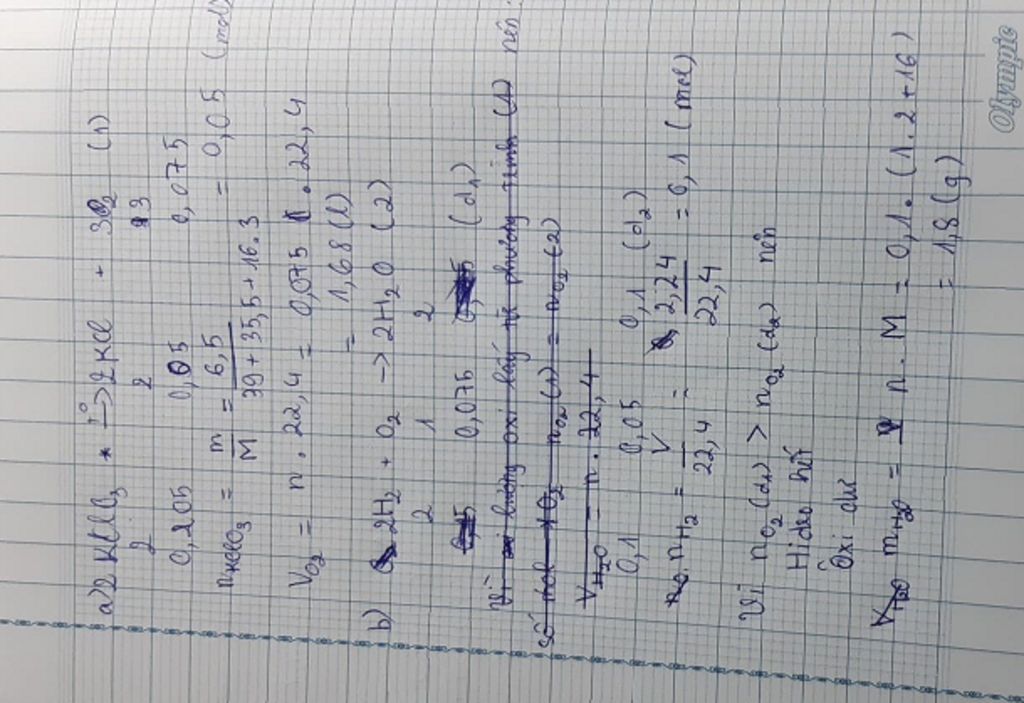 a) 2 KClO3 t° -> 2 KCl + 3O2 (1)
2 2 3
0,05 0,05 0,075
nKClO3 = m/M = 6,5/(39+35,5+16.3) = 0,05 (mol)
VO2 = n . 22,4 = 0,075 . 22,4
= 1,68 (l)
b) 2H2 + O2 -> 2H2O (2)
2 1 2
0,075 (d1)
Vì lượng oxi lấy từ phương trình (1) nên:
số mol O2 nO2 (1) = nO2 (2)
VH2O = n . 22,4
0,1 0,05 0,1 (d2)
nH2 = V/22,4 = 2,24/22,4 = 0,1 (mol)
Vì nO2 (d1) > nO2 (d2) nên
Hidro hết
Ôxi dư
mH2O = n . M = 0,1 . (1.2+16)
= 1,8 (g)
Olympic